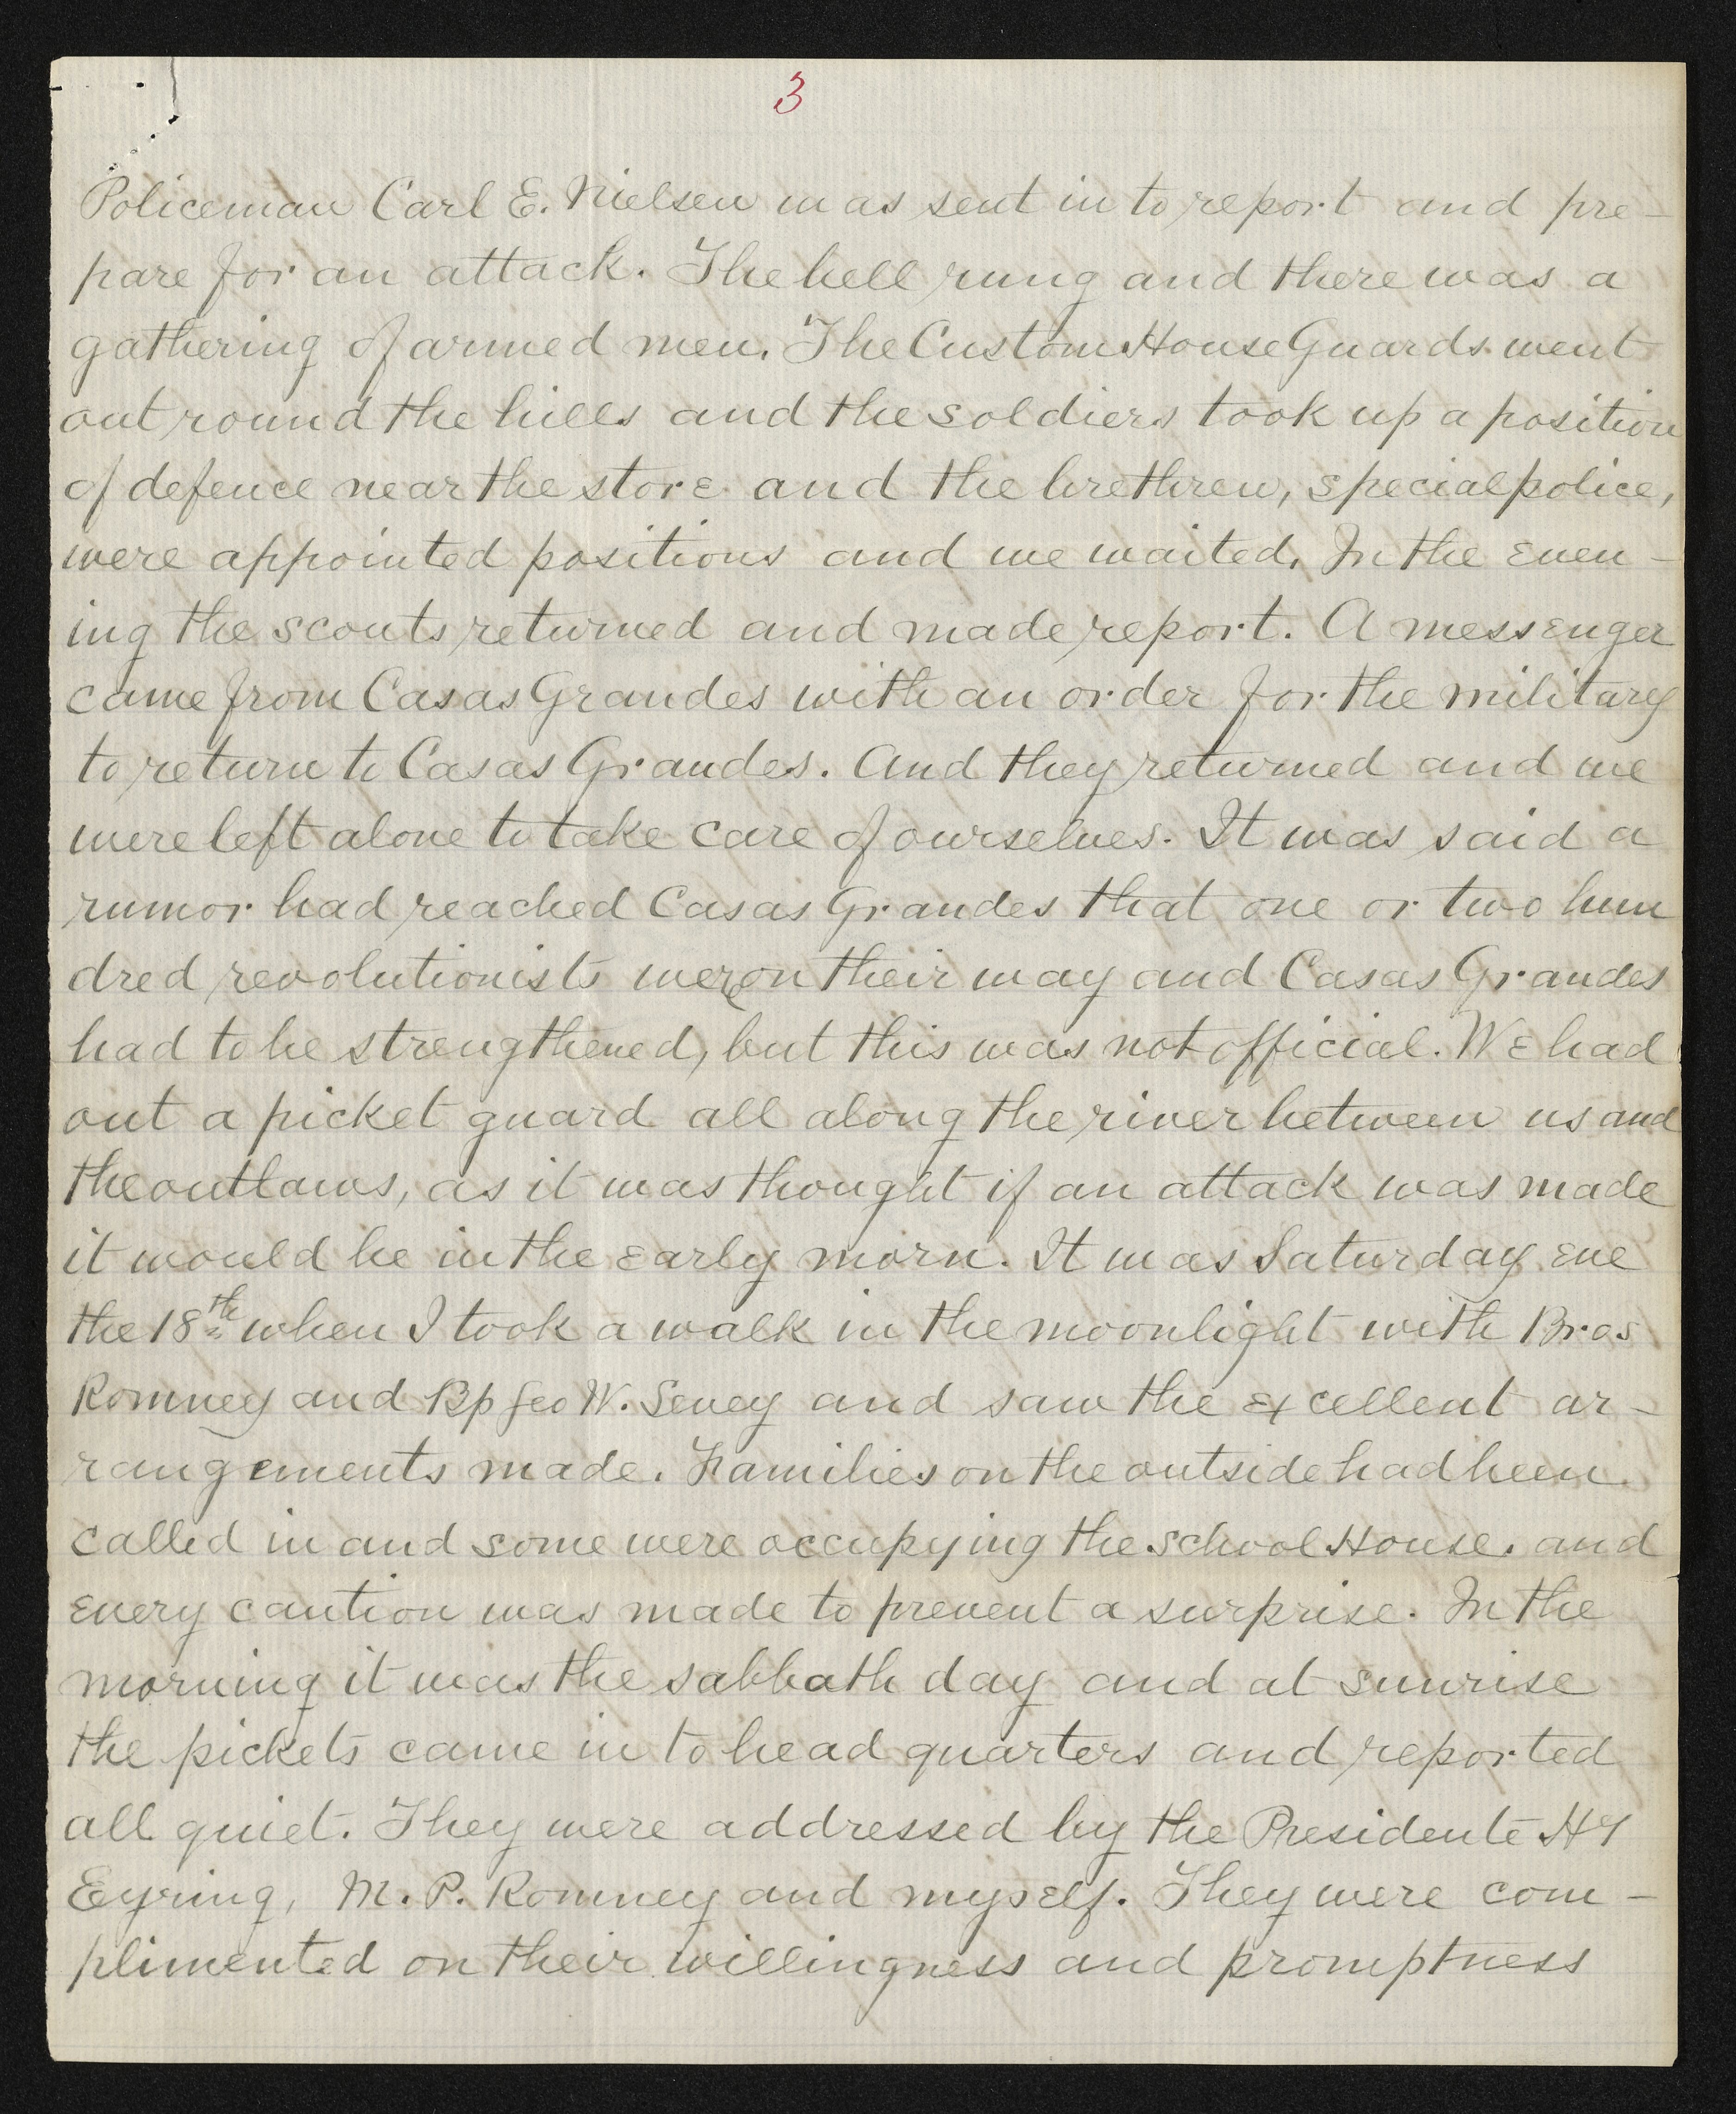 3
Policeman Carl E. Nielsen was sent in to report and pre-
pare for an attack. The bell rung and there was a
gathering of armed men. The Custom House Guards went
out round the hills and the soldiers took up a position
of defence near the store and the brethren, special police,
were appointed positions and we waited. In the even-
ing the scouts returned and made report. A messenger
came from Casas Grandes with an order for the military
to return to Casas Grandes. And they returned and we
were left alone to take care of ourselves. It was said a
rumor had reached Casas Grandes that one or two hun
dred revolutionists were on their way and Casas Grandes
had to be strengthened, but this was not official. We had
out a picket guard all along the river between us and
the outlaws, as it was thought if an attack was made
it would be in the early morn. It was Saturday eve
the 18th when I took a walk in the moonlight with Bros
Romney and Bp Geo W. Sevey and saw the excellent ar-
rangements made. Families on the outside had been
called in and some were occupying the school House. and
every caution was made to prevent a surprise. In the
morning it was the sabbath day and at sunrise
the pickets came in to head quarters and reported
all quiet. They were addressed by the Presidente Hy
Eyring, M. P. Romney and myself. They were com-
plimented on their willingness and promptness